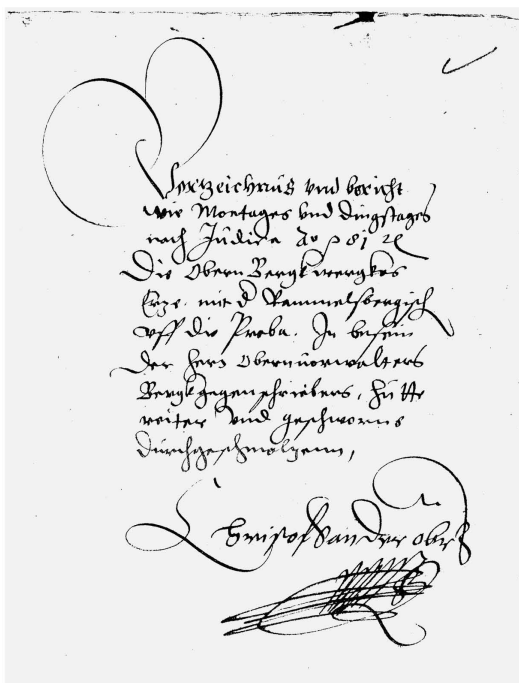 Vortzeichnüs vnd bericht
wie Montages vnd dingstages
nach Judica Ao p 81 2c
Die Obern Bergkwergkes
Ertze mit d Rammelsbergisch
vff die Proba. In beisein
der hern Obernuorwalters
Bergkgegenschriebers, hütte
reiter vnd geschworne
durchgeschmoltzenn,
Christof Sander ober